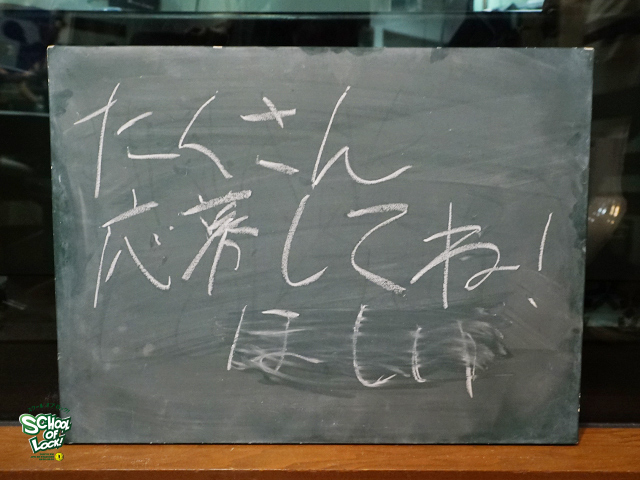 たくさん
応募してね!
SCHOOL
OF
LOCK!